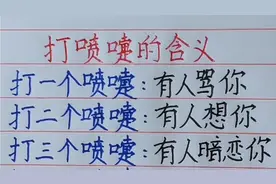 打喷嚏的含义
打一个喷嚏：有人骂你
打二个喷嚏：有人想你
打三个喷嚏：有人暗恋你